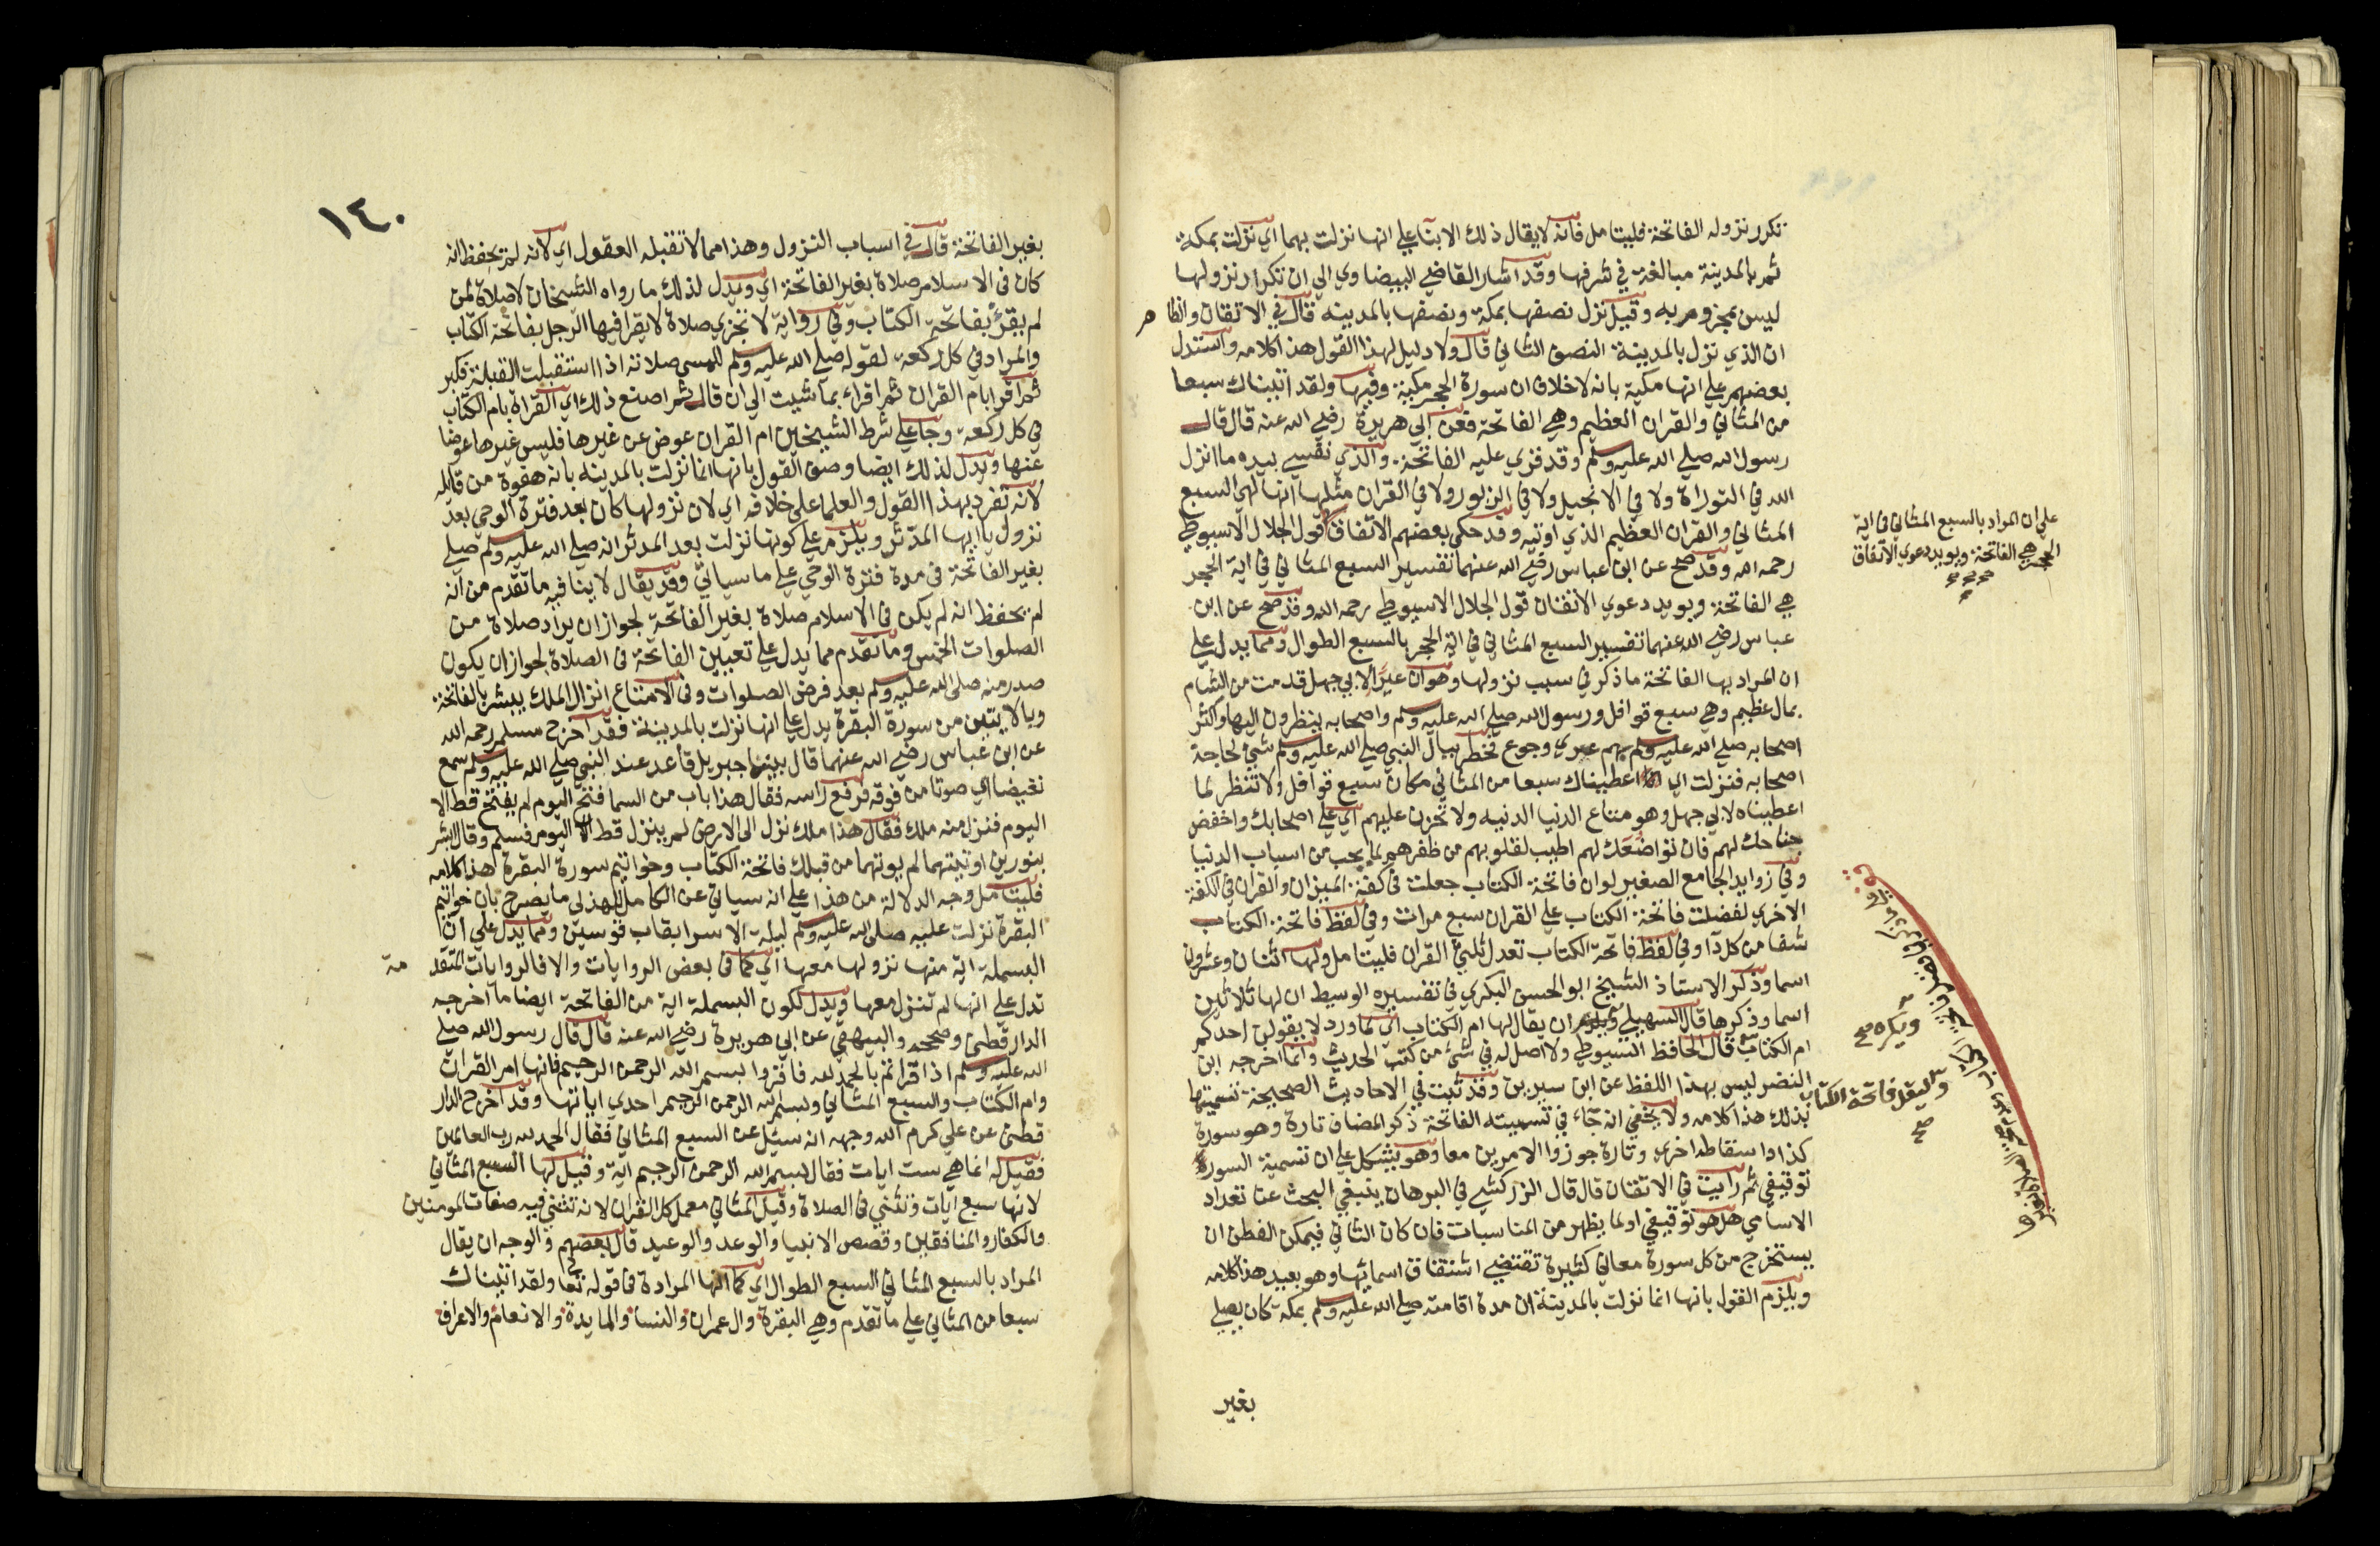 تكرر نزوله الفاتحة فليتامل فانه لا يقال ذلك الا بناء على انها نزلت بهما اي نزلت بمكة
ثم بالمدينة مبالغة في شرفها وقد اشار القاضي البيضاوي الى ان تكرار نزولها
ليس بمجزوم به وقيل نزل نصفها بمكة ونصفها بالمدينه قال في الاتقان والظاهر
ان الذي نزل بالمدينة النصف الثاني قال ولا دليل لهذا القول هذا كلامه واستدل
بعضهم على انها مكية بانه لا خلاف ان سورة الحجر مكية وفيها ولقد اتيناك سبعا
من المثاني والقران العظيم وهي الفاتحة فعن ابي هريرة رضي الله عنه قال قال
رسول الله صلى الله عليه وسلم وقد قري عليه الفاتحة والذي نفسي بيده ما انزل
الله في التوراة ولا في الانجيل ولا في الزبور ولا في القران مثلها انها لهي السبع
المثاني والقران العظيم الذي اوتيه وقد حكى بعضهم الاتفاق قول الجلال الاسيوطي
رحمه الله وقد صح عن ابن عباس رضي الله عنهما تفسير السبع المثاني في اية الحجر
هي الفاتحة ويويد دعوي الاتفاق قول الجلال الاسيوطي رحمه الله وقد صح عن ابن
عباس رضي الله عنهما تفسير السبع المثاني في اية الحجر بالسبع الطوال ومما يدل على
ان المراد بها الفاتحة ما ذكر في سبب نزولها وهو ان عير لابي جهل قدمت من الشام
بمال عظيم وهي سبع قوافل ورسول الله صلى الله عليه وسلم واصحابه ينظرون اليها واكثر
اصحابه صلى الله عليه وسلم بهم عري وجوع فخطر ببال النبي صلى الله عليه وسلم شي لحاجة
اصحابه فنزلت اي اعطيناك سبعا من المثاني مكان سبع قوافل ولا تنظر لما
اعطيناه لابي جهل وهو متاع الدنيا الدنيه ولا تحزن عليهم اي على اصحابك واخفض
جناحك لهم فان تواضعك لهم اطيب لقلوبهم من ظفرهم بما يحب من اسباب الدنيا
وفي زوايد الجامع الصغير لو ان فاتحة الكتاب جعلت في كفة الميزان والقران في الكفة
الاخري لفضلت فاتحة الكتاب على القران سبع مرات وفي لفظ فاتحة الكتاب
شفا من كل دآ وفي لفظ فاتحة الكتاب تعدل ثلثي القران فليتامل ولها اثنان وعشرون
اسما وذكر الاستاذ الشيخ ابو الحسن البكري في تفسيره الوسيط ان لها ثلاثين
اسما وذكرها قال السهيلي ان يقال لها ام الكتاب اي لما ورد لا يقولن احدكم
ام الكتاب قال الحافظ السيوطي ولا اصل له في شئ من كتب الحديث وانما اخرجه ابن
النضر ليس بهذا اللفظ عن ابن سيرين وقد ثبت في الاحاديث الصحيحة تسميتها
بذلك هذا كلامه ولا يخفي انه جآء في تسميته الفاتحة ذكر المضاف تارة وهو سورة
كذا واسقاط اخري وتارة جوزوا الامرين معا وهو يشكل على ان تسمية السورة
توقيفي ثم رايت في الاتقان قال قال الزركشي في البرهان ينبغي البحث عن تعداد
الاسامي هل هو توقيفي او لما يظهر من المناسبات فان كان الثاني فيمكن الفطن ان
يستخرج من كل سورة معاني كثيرة تقتضي اشتقاق اسمايها وهو بعيد هذا كلامه
ويلزم القول بانها انما نزلت بالمدينة ان مدة اقامته صلى الله عليه وسلم بمكة كان يصلي
بغير
على ان المراد بالسبع المثاني في اية
الحجر هي الفاتحة ويويد دعوي الاتفاق
ويكره صح
وليقل فاتحة الكتاب
صح
١٤٠
بغير الفاتحة قال في اسباب النزول وهذا مما لا تقبله العقول اي لانه لم يحفظ انه
كان في الاسلام صلاة بغير الفاتحة اي ويدل لذلك ما رواه الشيخان لا صلاة لمن
لم يقرأ بفاتحة الكتاب وفي رواية لا تجزي صلاة لا يقرا فيها الرجل بفاتحة الكتاب
والمراد في كل ركعة لقوله صلى الله عليه وسلم للمسي صلاته اذا استقبلت القبلة فكبر
ثم اقرا بام القران ثم اقراء بما شيت الى ان قال ثم اصنع ذلك اي القراة بام الكتاب
في كل ركعة وجا على شرط الشيخين ام القران عوض عن غيرها فليس غيرها عوضا
عنها ويدل لذلك ايضا وصف القول بانها انما نزلت بالمدينه بانه هفوة من قايله
لانه تفرد بهذا القول والعلما على خلافه اي لان نزولها كان بعد فترة الوحي بعد
نزول يا ايها المدثر ويلزم على كونها نزلت بعد المدثر انه صلى الله عليه وسلم صلى
بغير الفاتحة في مدة فترة الوحي على ما سياتي وقد يقال لا ينافيه ما تقدم من انه
لم يحفظ انه لم يكن في الاسلام صلاة بغير الفاتحة لجواز ان يراد صلاة من
الصلوات الخمس وما تقدم مما يدل على تعيين الفاتحة في الصلاة لجواز ان يكون
صدر منه صلى الله عليه وسلم بعد فرض الصلوات وفي الامتاع انزال الملك يبشره بالفاتحة
وبالايتين من سورة البقرة يدل على انها نزلت بالمدينة فقد اخرج مسلم رحمه الله
عن ابن عباس رضي الله عنهما قال بينما جبريل قاعد عند النبي صلى الله عليه وسلم سمع
نقيضا اي صوتا من فوقه فرفع راسه فقال هذا باب من السما فتح اليوم لم يفتح قط الا
اليوم فنزل منه ملك فقال هذا ملك نزل الى الارض لم ينزل قط الا اليوم فسلم وقال ابشر
بنورين اوتيتهما لم يوتهما من قبلك فاتحة الكتاب وخواتيم سورة البقرة هذا كلامه
فليتامل وجه الدلالة من هذا على انه سياتي عن الكامل للهذلي ما يصرح بان خواتيم
البقرة نزلت عليه صلى الله عليه وسلم ليلة الاسرا بقاب قوسين ومما يدل على ان
البسملة اية منها نزولها معها اي كما في بعض الروايات والا فالروايات المتقدمة
تدل على انها لم تنزل معها ويدل لكون البسملة اية من الفاتحة ايضا ما اخرجه
الدارقطني وصححه والبيهقي عن ابي هريرة رضي الله عنه قال قال رسول الله صلى
الله عليه وسلم اذا قراتم بالحمد لله فاقروا بسم الله الرحمن الرحيم فانها ام القران
وام الكتاب والسبع المثاني وبسم الله الرحمن الرحيم احدي اياتها وقد اخرج الدار
قطني عن علي كرم الله وجهه انه سئل عن السبع المثاني فقال الحمد لله رب العالمين
فقيل له انما هي ست ايات فقال بسم الله الرحمن الرحيم اية وقيل لها السبع المثاني
لانها سبع ايات وتثني في الصلاة وقيل المثاني كل القران لانه تثني فيه صفات المومنين
والكفار والمنافقين وقصص الانبيا والوعد والوعيد قال بعضهم والوجه ان يقال
المراد بالسبع المثاني السبع الطوال اي كما انها المرادة في قوله تعالى ولقد اتيناك
سبعا من المثاني على ما تقدم وهي البقرة وال عمران والنسا والمايدة والانعام والاعراف